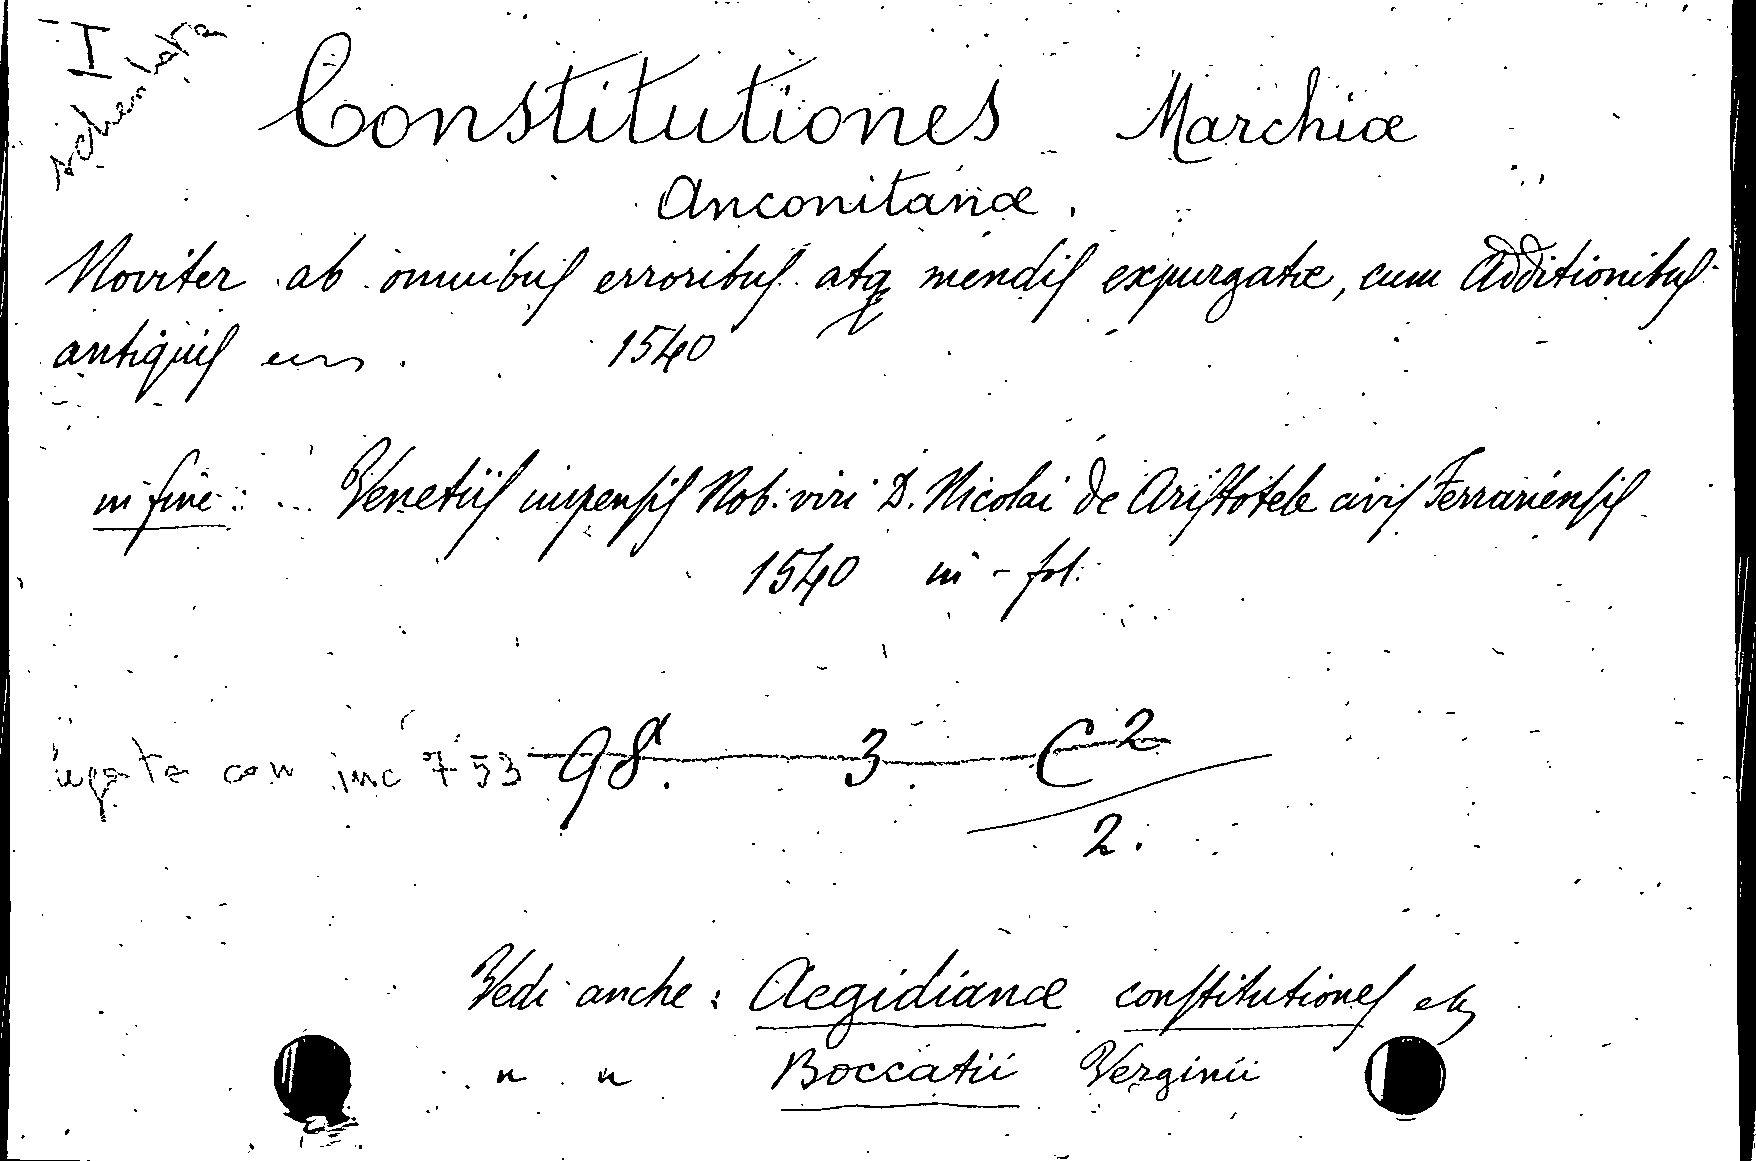 I
schedata
Constitutiones Marchiæ
Anconitanæ.
Noviter ab omnibus erroribus atq mendis expurgatæ, cum Additionibus
antiquis ecc. 1540
in fine: ... Venetiis impensis Nob: viri D. Nicolai de Aristotele civis Ferrariensis
1540 in-fol:
legato con inc 753 98. 3. C 2
2.
Vedi anche: Aegidianæ constitutiones etc
" " Boccatii Verginii